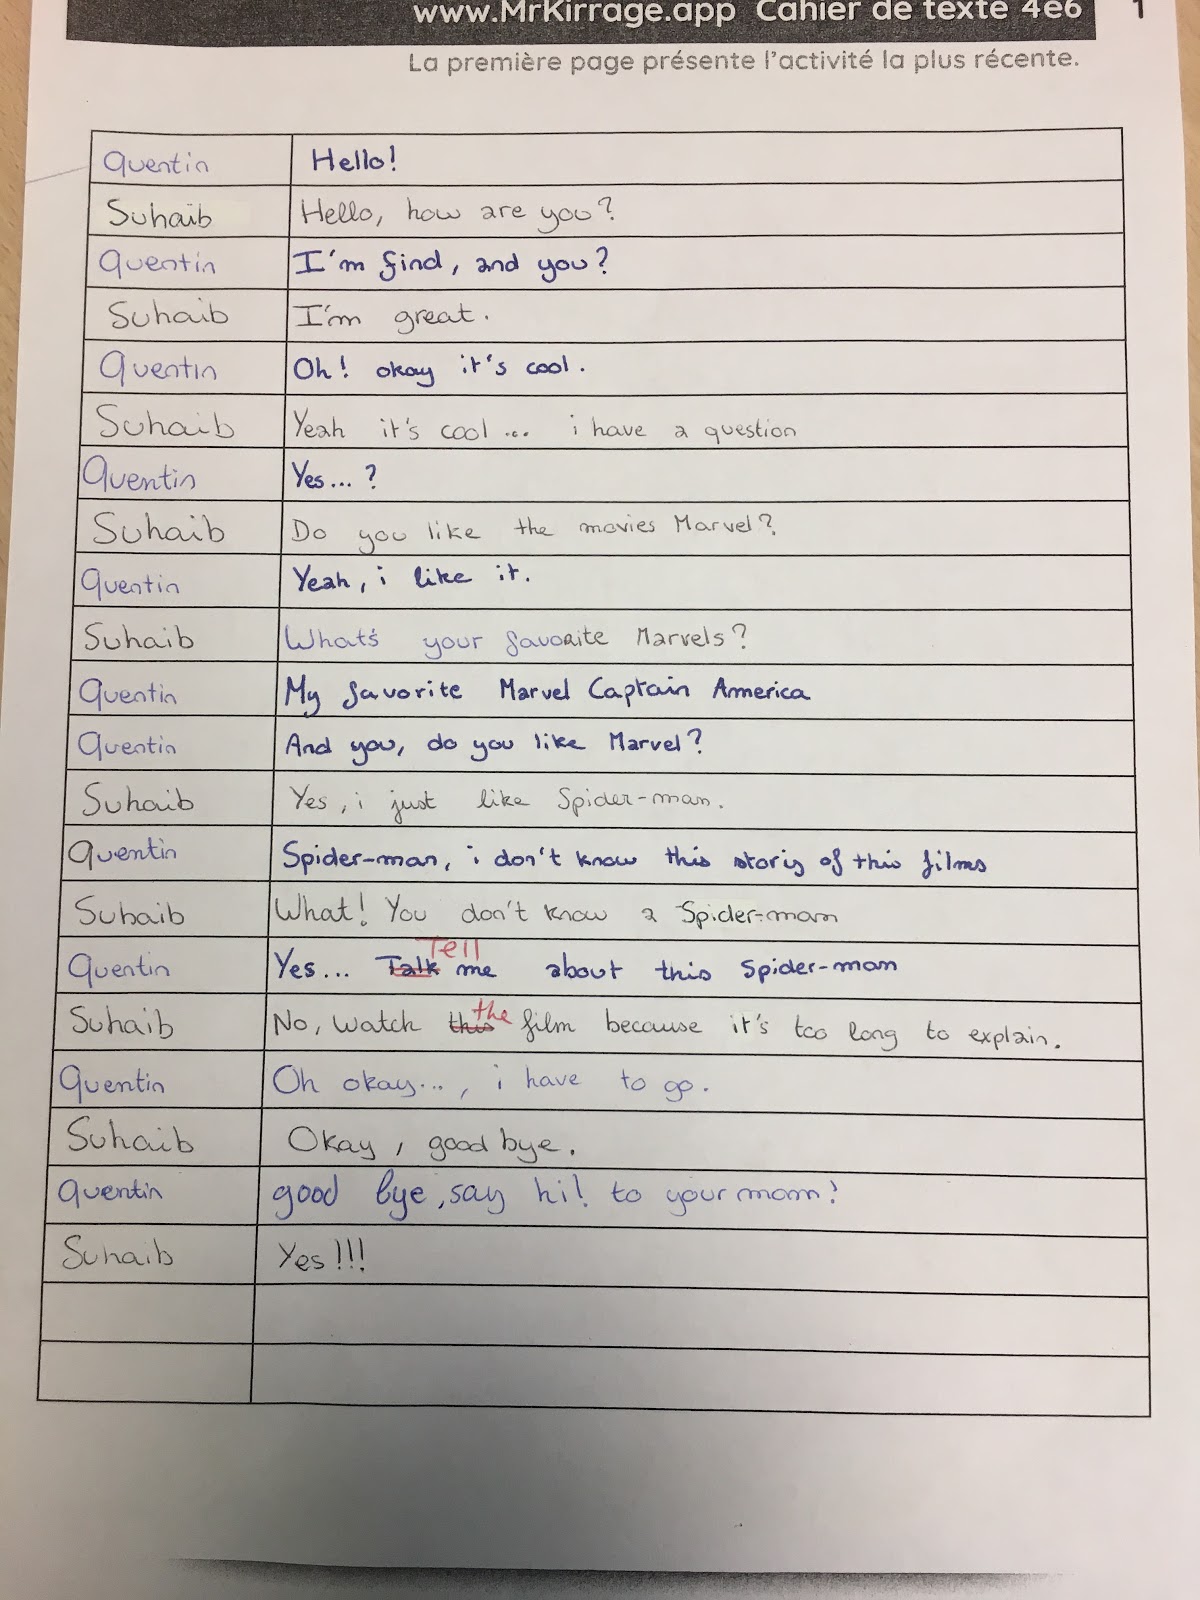 www.MrKirrage.app Cahier de texte 4e6 1
La première page présente l'activité la plus récente.
Quentin Hello!
Suhaib Hello, how are you?
Quentin I'm find, and you?
Suhaib I'm great.
Quentin Oh! okay it's cool.
Suhaib Yeah it's cool ... i have a question
Quentin Yes... ?
Suhaib Do you like the movies Marvel?
Quentin Yeah, i like it.
Suhaib What's your favorite Marvels?
Quentin My favorite Marvel Captain America
Quentin And you, do you like Marvel?
Suhaib Yes, i just like Spider-man.
Quentin Spider-man, i don't know this storis of this films
Suhaib What! You don't know a Spider-man
Quentin Yes... Talk Tell me about this Spider-man
Suhaib No, watch this the film because it's too long to explain.
Quentin Oh okay..., i have to go.
Suhaib Okay, good bye.
Quentin good bye, say hi! to your mom!
Suhaib Yes!!!